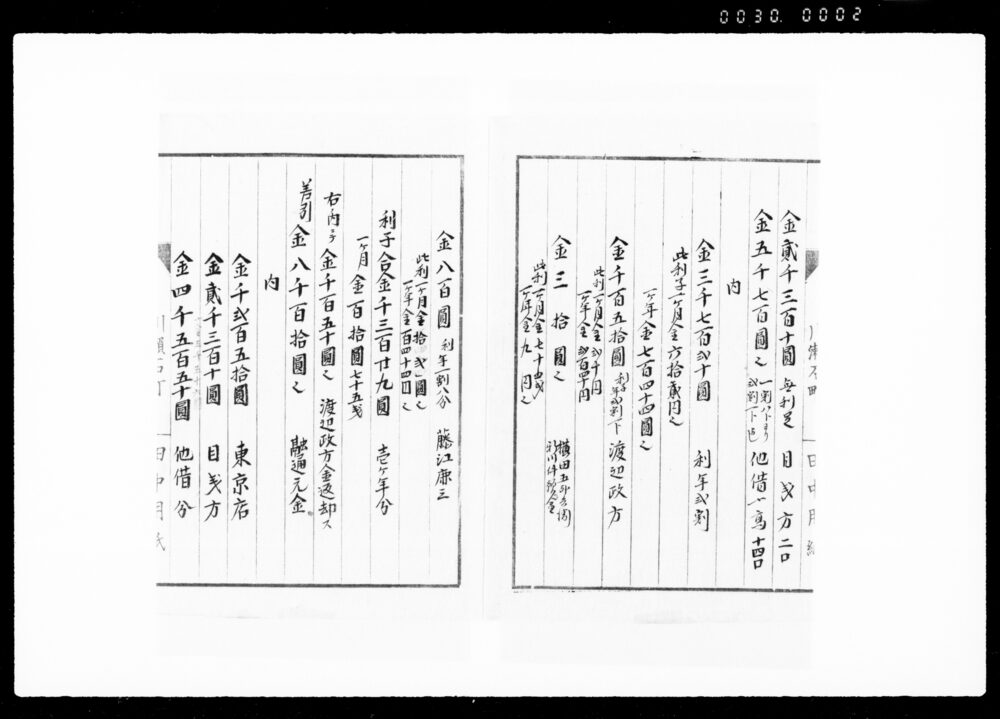 0030. 0002
金貳千三百十圓 無利足 目貳方 二口
金五千七百圓之 一割八分より 弐割一下迄 他借 十四口
内
金三千七百弐十圓 利年弐割
此利子一ヶ月金六拾貳円之
一ヶ年金七百四十四圓之
金千百五拾圓 利子年弐割一下 渡辺政方
此利一ヶ月金弐十円
一ヶ年金弐百四十円
金三拾圓之
此利一ヶ月金七十五戔
一ヶ年金九円之
金八百圓 利年一割八分 藤江康三
此利一ヶ月金拾弐圓之
一ヶ年金百四十四円之
利子合金千三百廿九圓 壱ヶ年分
一ヶ月金百拾圓七十五戔
右内子金千百五十圓之 渡辺政方金返却ス
差引金八千百拾圓之 融通元金
内
金千弐百五拾圓 東京店
金貳千三百十圓 目戔方
金四千五百五十圓 他借分
田中用紙